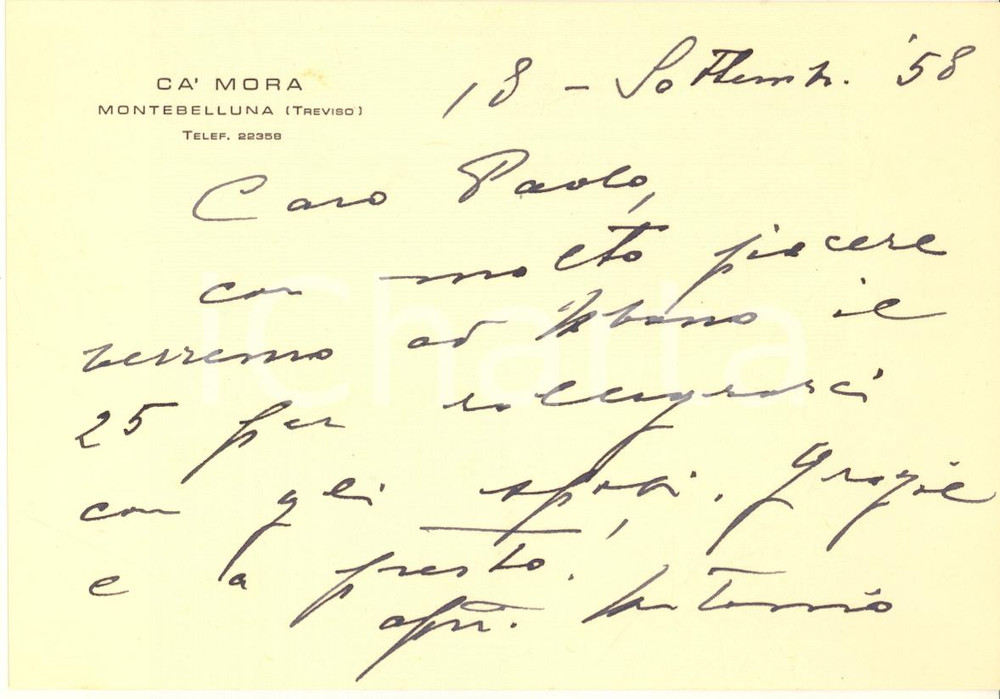 CA' MORA
MONTEBELLUNA (TREVISO)
TELEF. 22358
18 - Settemb. '58
Caro Paolo,
con molto piacere
verremo ad Abano il
25 per rallegrarci
con gli sposi. Grazie
e a presto!
aff. Antonio